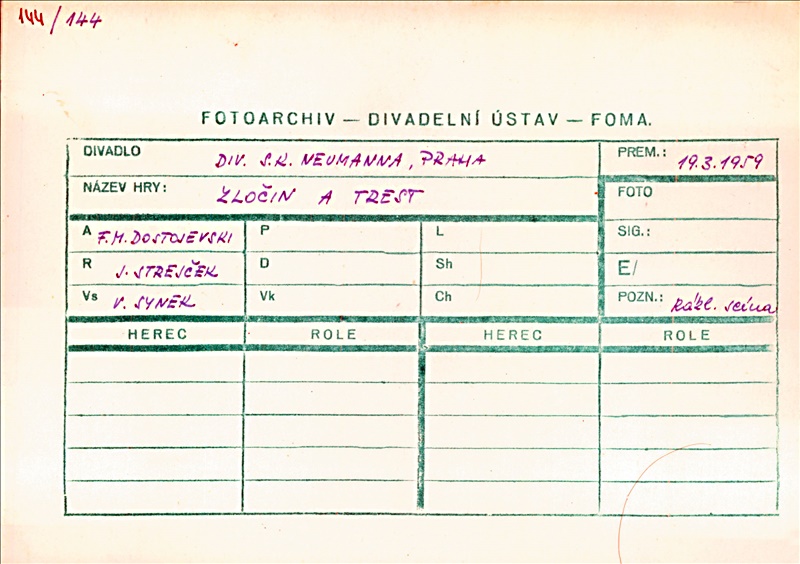 144/144
FOTOARCHIV — DIVADELNÍ ÚSTAV — FOMA.
DIVADLO DIV. S.K. NEUMANNA, PRAHA PREM.: 19.3.1959
NÁZEV HRY: ZLOČIN A TREST FOTO
A F.M. DOSTOJEVSKI P L SIG.:
R J. STREJČEK D Sh E/
Vs V. SYNEK Vk Ch POZN.: Rázl. scéna
HEREC ROLE HEREC ROLE